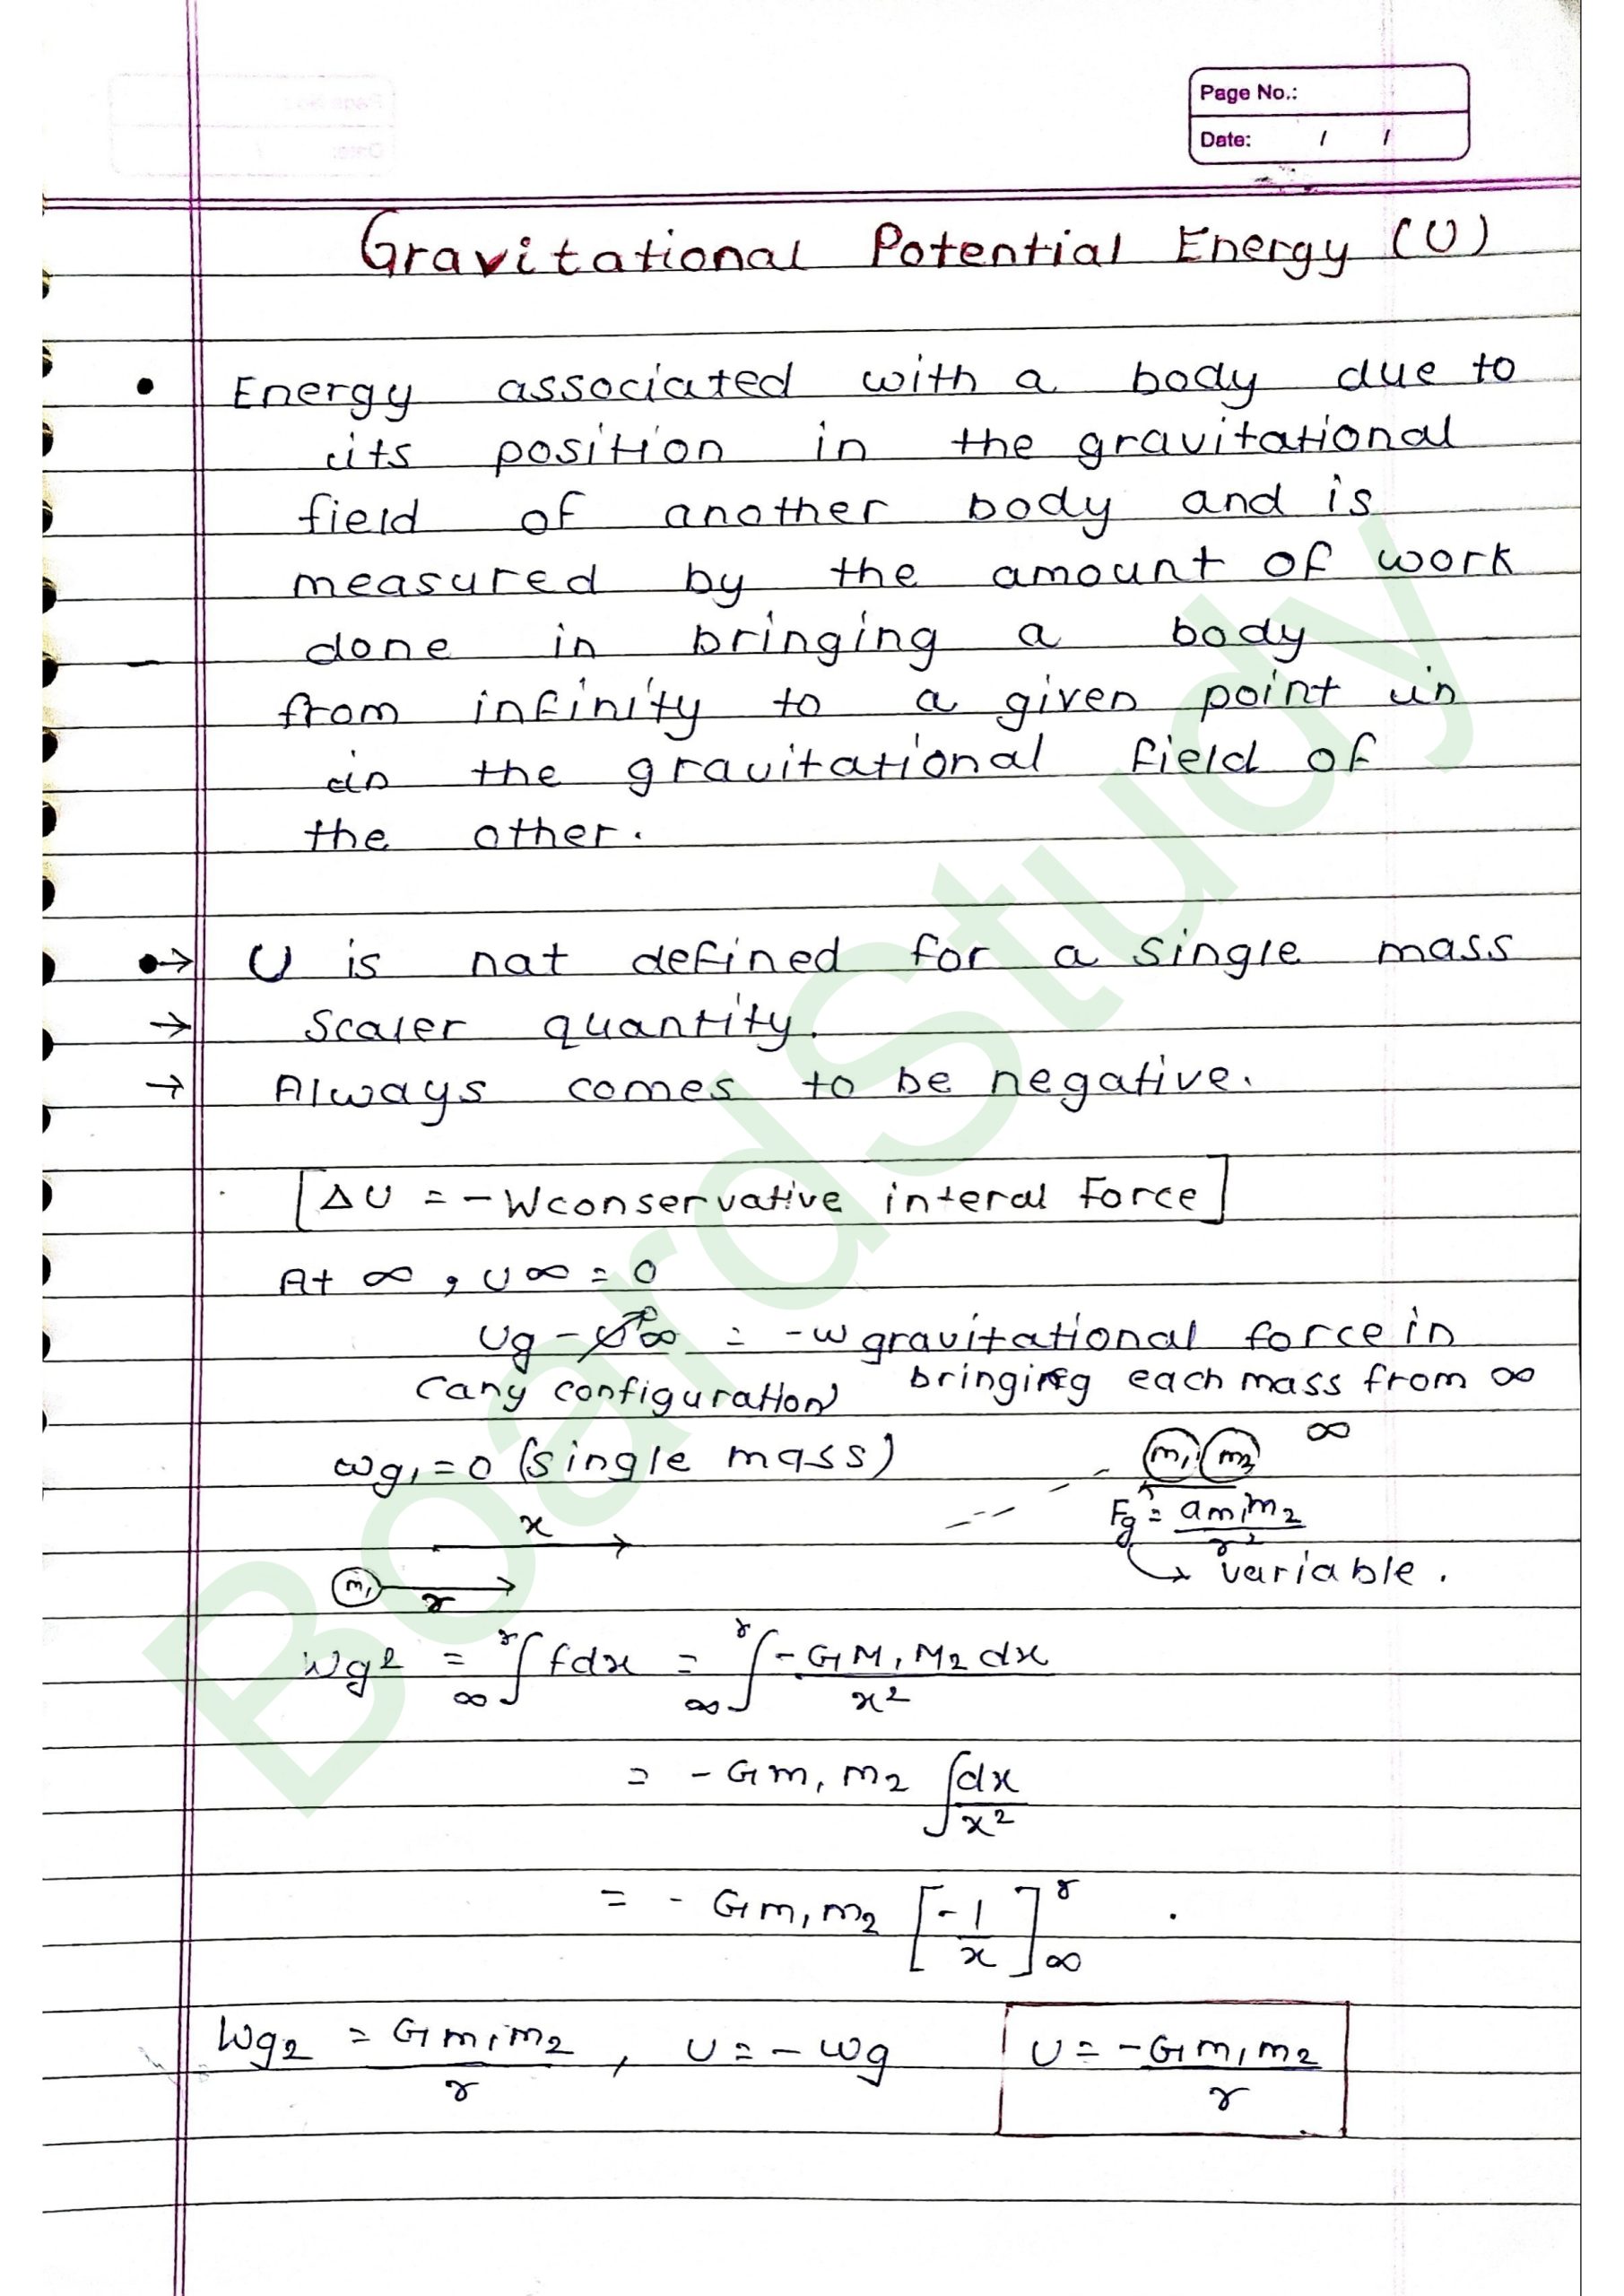 Page No.:
Date: / /
Gravitational Potential Energy (U)
• Energy associated with a body due to
its position in the gravitational
field of another body and is
measured by the amount of work
done in bringing a body
from infinity to a given point in
in the gravitational field of
the other.
•→ U is nat defined for a single mass
→ Scaler quantity.
→ Always comes to be negative.
[ΔU = -Wconservative interal Force]
At ∞, U∞ = 0
Ug - U∞ = -w gravitational force in
(any configuration) bringing each mass from ∞
wg1 = 0 (single mass)
m1 m2 ∞
x
Fg = Gm1m2/r²
→ variable.
m1 r
Wg2 = ∞∫r fdx = ∞∫r -GM1M2dx/x²
= -Gm1m2 ∫dx/x²
= - Gm1m2 [-1/x]r∞
Wg2 = Gm1m2/r, U = -wg U = -Gm1m2/r
BoardStudy